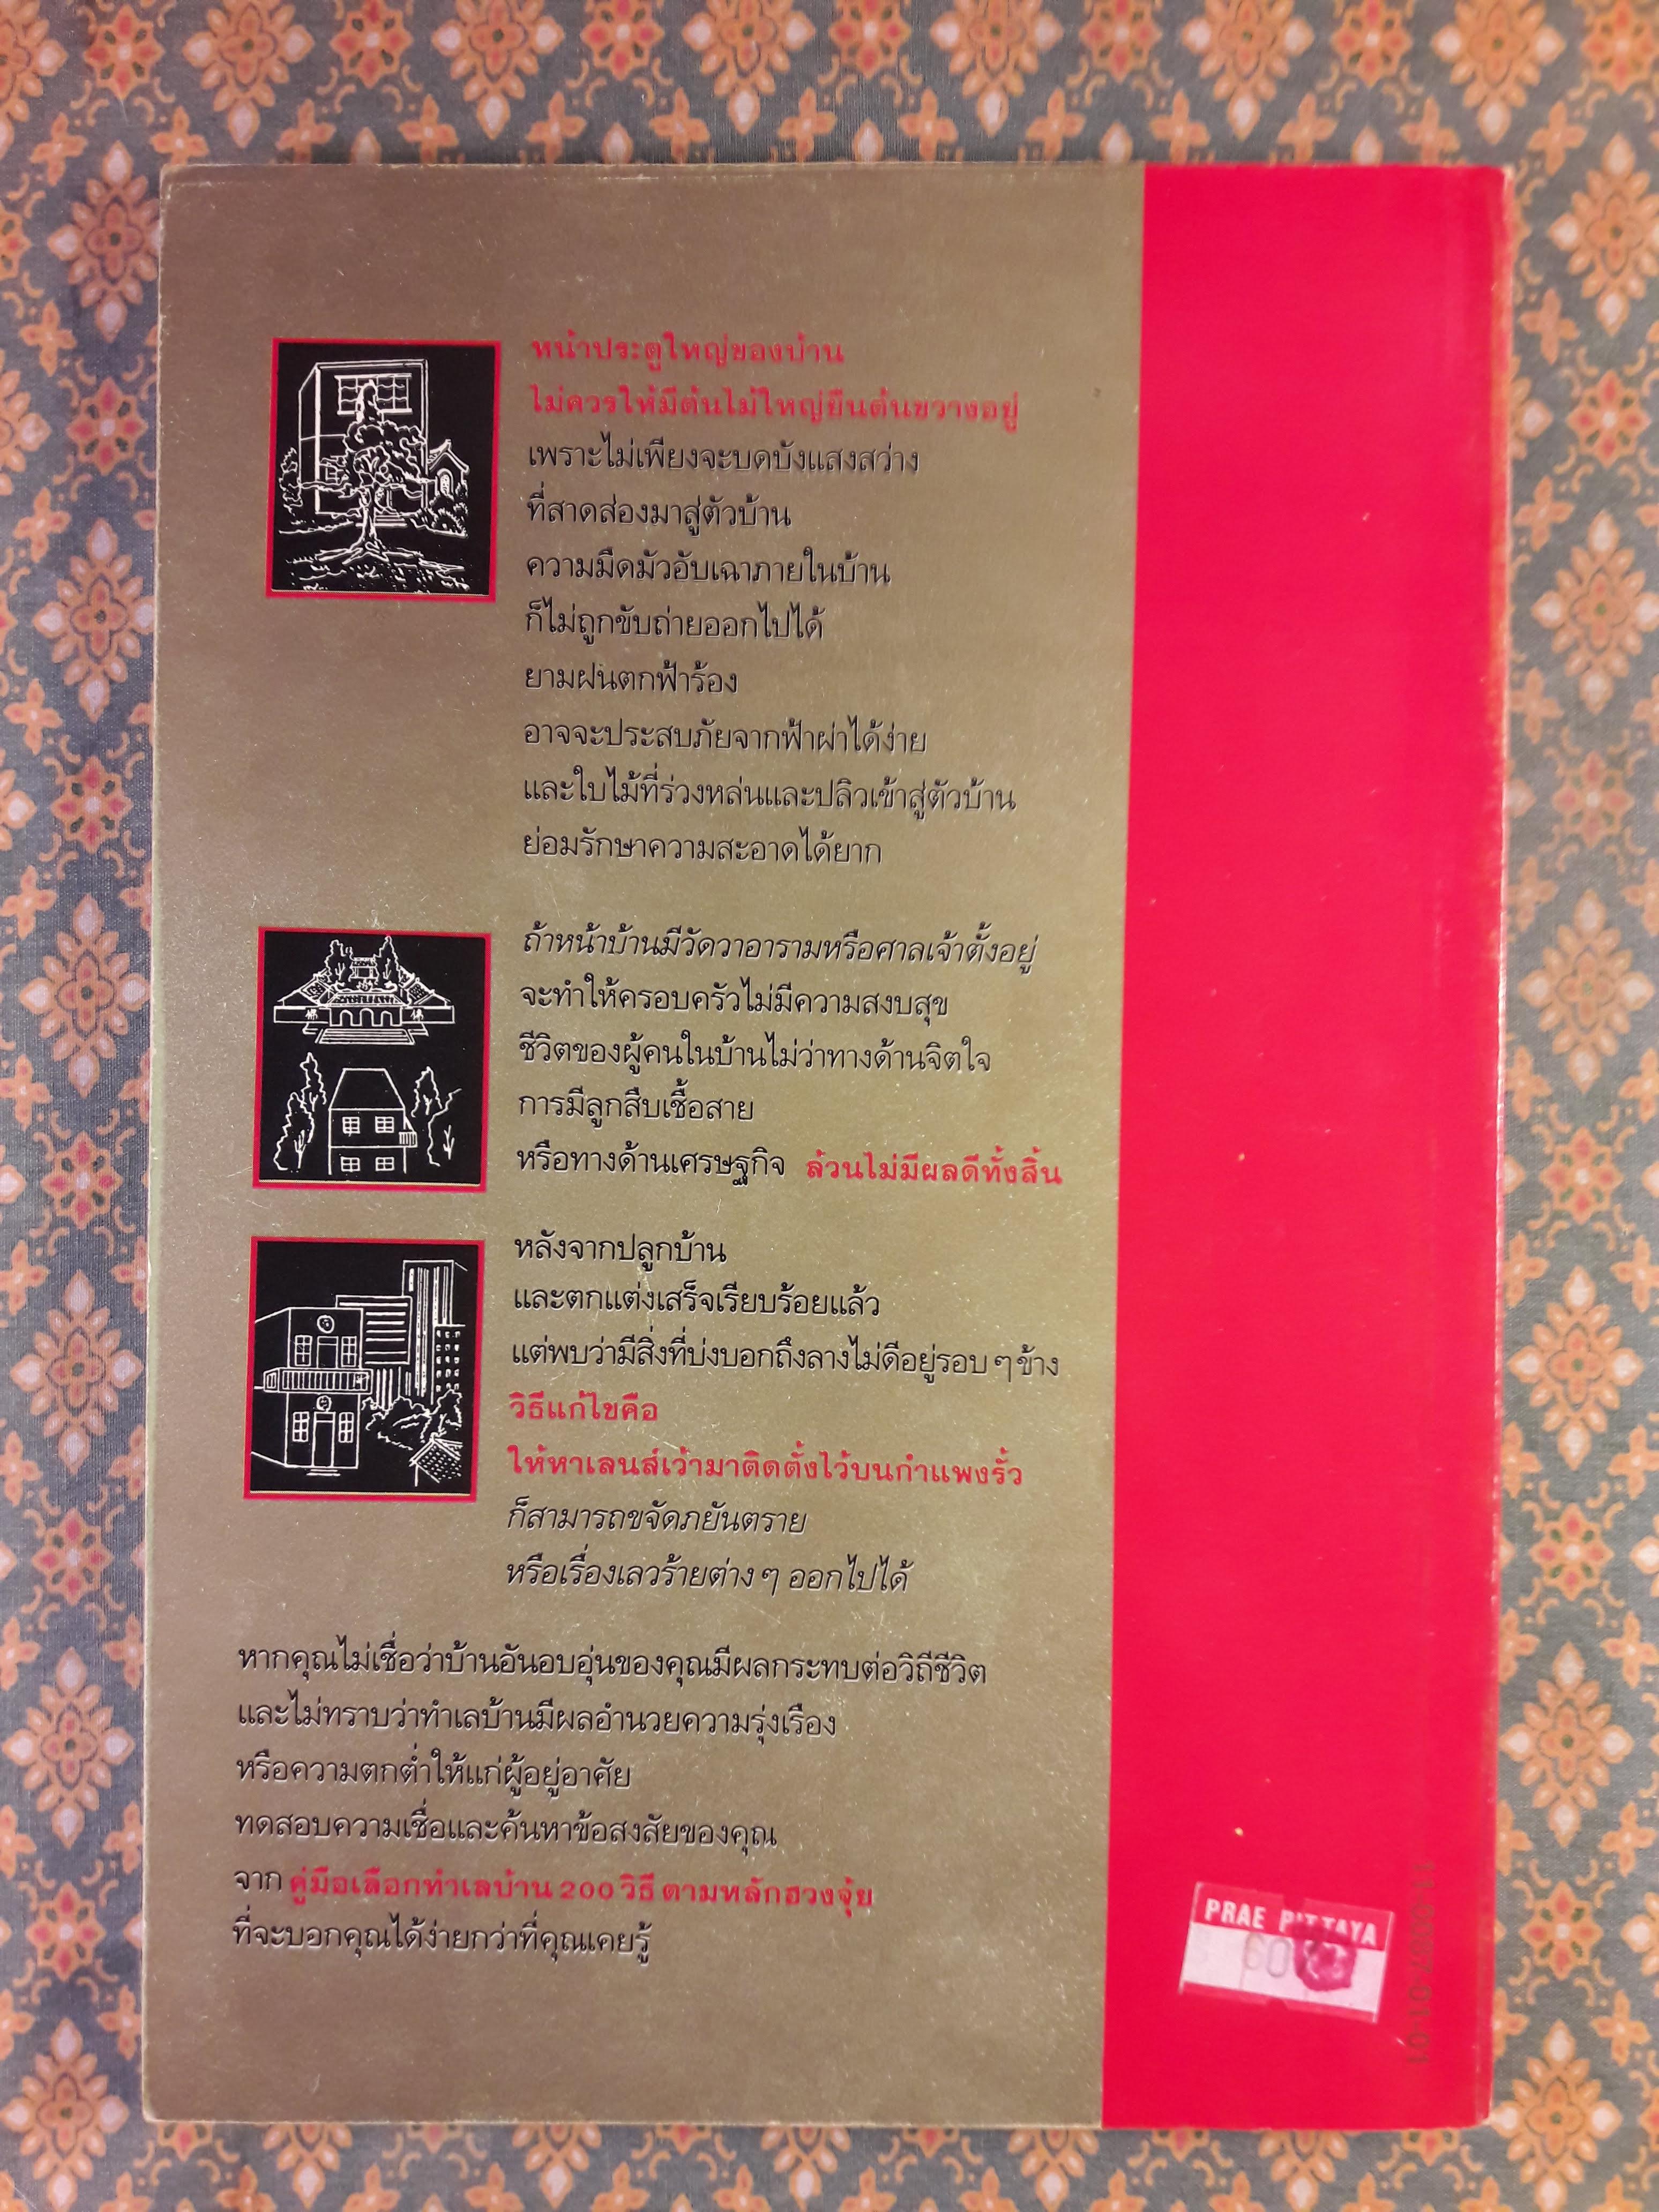 หน้าประตูใหญ่ของบ้าน
ไม่ควรให้มีต้นไม้ใหญ่ยืนต้นขวางอยู่
เพราะไม่เพียงจะบดบังแสงสว่าง
ที่สาดส่องมาสู่ตัวบ้าน
ความมืดมัวอับเฉาภายในบ้าน
ก็ไม่ถูกขับถ่ายออกไปได้
ยามฝนตกฟ้าร้อง
อาจจะประสบภัยจากฟ้าผ่าได้ง่าย
และใบไม้ที่ร่วงหล่นและปลิวเข้าสู่ตัวบ้าน
ย่อมรักษาความสะอาดได้ยาก
ถ้าหน้าบ้านมีวัดวาอารามหรือศาลเจ้าตั้งอยู่
จะทำให้ครอบครัวไม่มีความสงบสุข
ชีวิตของผู้คนในบ้านไม่ว่าทางด้านจิตใจ
การมีลูกสืบเชื้อสาย
หรือทางด้านเศรษฐกิจ ล้วนไม่มีผลดีทั้งสิ้น
หลังจากปลูกบ้าน
และตกแต่งเสร็จเรียบร้อยแล้ว
แต่พบว่ามีสิ่งที่บ่งบอกถึงลางไม่ดีอยู่รอบ ๆ ข้าง
วิธีแก้ไขคือ
ให้หาเลนส์เว้ามาติดตั้งไว้บนกำแพงรั้ว
ก็สามารถขจัดภยันตราย
หรือเรื่องเลวร้ายต่าง ๆ ออกไปได้
หากคุณไม่เชื่อว่าบ้านอันอบอุ่นของคุณมีผลกระทบต่อวิถีชีวิต
และไม่ทราบว่าทำเลบ้านมีผลอำนวยความรุ่งเรือง
หรือความตกต่ำให้แก่ผู้อยู่อาศัย
ทดสอบความเชื่อและค้นหาข้อสงสัยของคุณ
จาก คู่มือเลือกทำเลบ้าน 200 วิธี ตามหลักฮวงจุ้ย
ที่จะบอกคุณได้ง่ายกว่าที่คุณเคยรู้
PRAE PITTAYA